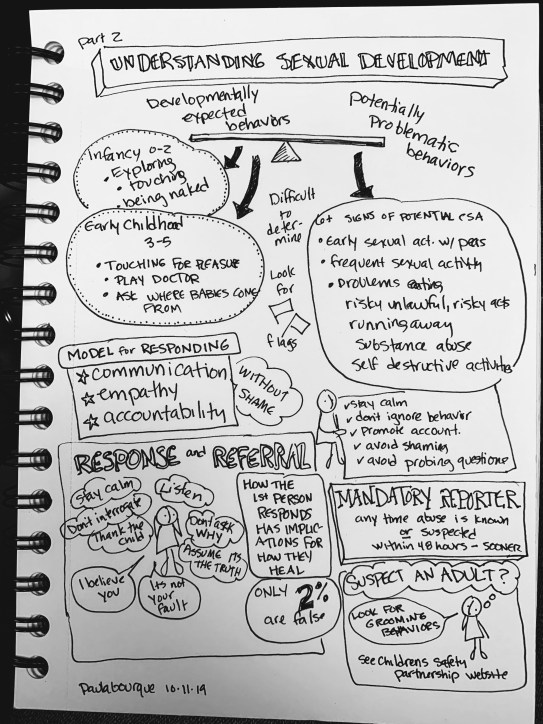 part 2
UNDERSTANDING SEXUAL DEVELOPMENT
Developmentally
expected
behaviors
Potentially
Problematic
behaviors
Infancy 0-2
• Exploring
• touching
• being naked
Early Childhood
3-5
• TOUCHING FOR PLEASURE
• PLAY DOCTOR
• ASK WHERE BABIES COME
FROM
Difficult
to
deter-
mine
Look
for
flags
SIGNS OF POTENTIAL CSA
• Early sexual act. w/ peers
• frequent sexual activity
• Problems eating,
risky unlawful, risky acts
running away
substance abuse
Self destructive activities
MODEL for RESPONDING
☆ communication
☆ empathy
☆ accountability
WITHOUT
SHAME
✓ stay calm
✓ don't ignore behavior
✓ Promote account.
✓ avoid shaming
✓ avoid probing questions
RESPONSE and REFERRAL
Stay calm
Listen
Don't interrogate
Thank the
child
Don't ask
WHY
ASSUME ITS
THE TRUTH
I believe
you
Its not
your
fault
HOW THE
1ST PERSON
RESPONDS
HAS IMPLIC-
ATIONS FOR
HOW THEY
HEAL
ONLY 2%
are false
MANDATORY REPORTER
any time abuse is known
or suspected
within 48 hours - SOONER
SUSPECT AN ADULT?
LOOK FOR
GROOMING
BEHAVIORS
see Childrens Safety
partnership website
paulabourque 10.11.19